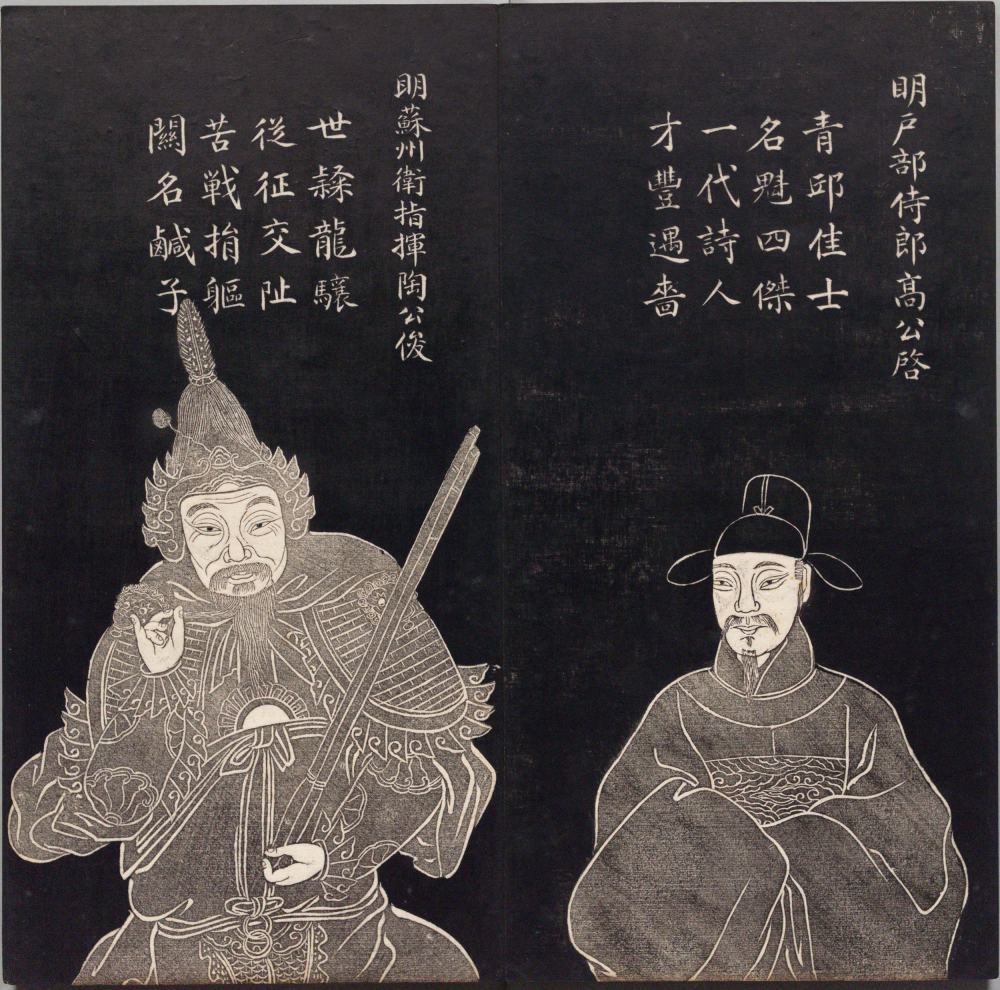 明戶部侍郎高公啓
青邱佳士
名魁四傑
一代詩人
才豐遇嗇
明蘇州衛指揮陶公俊
世隸龍驤
從征交阯
苦戰捐軀
關名鹹子